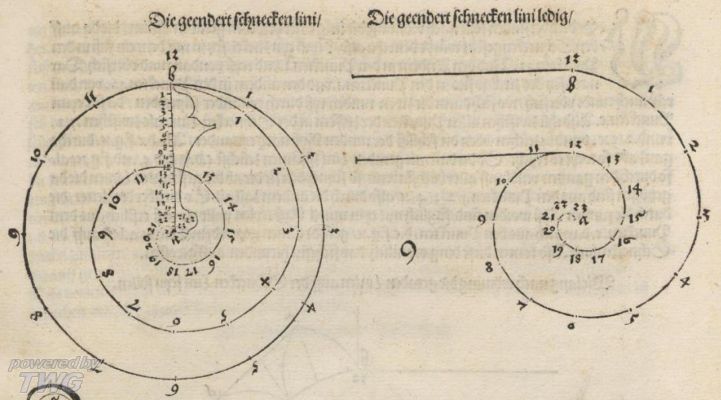 Die geendert ſchnecken lini/
Die geendert ſchnecken lini ledig/
12
12
b
b
11
1
1
1
2
10
2
2
11
13
11
12
13
10
14
10
14
9
3
3
9
15
9
22
23
a
21
20
15
3
9
16
19
18
17
16
8
4
4
8
4
8
18
17
7
5
6
7
5
6
7
5
6
powered by
TWG